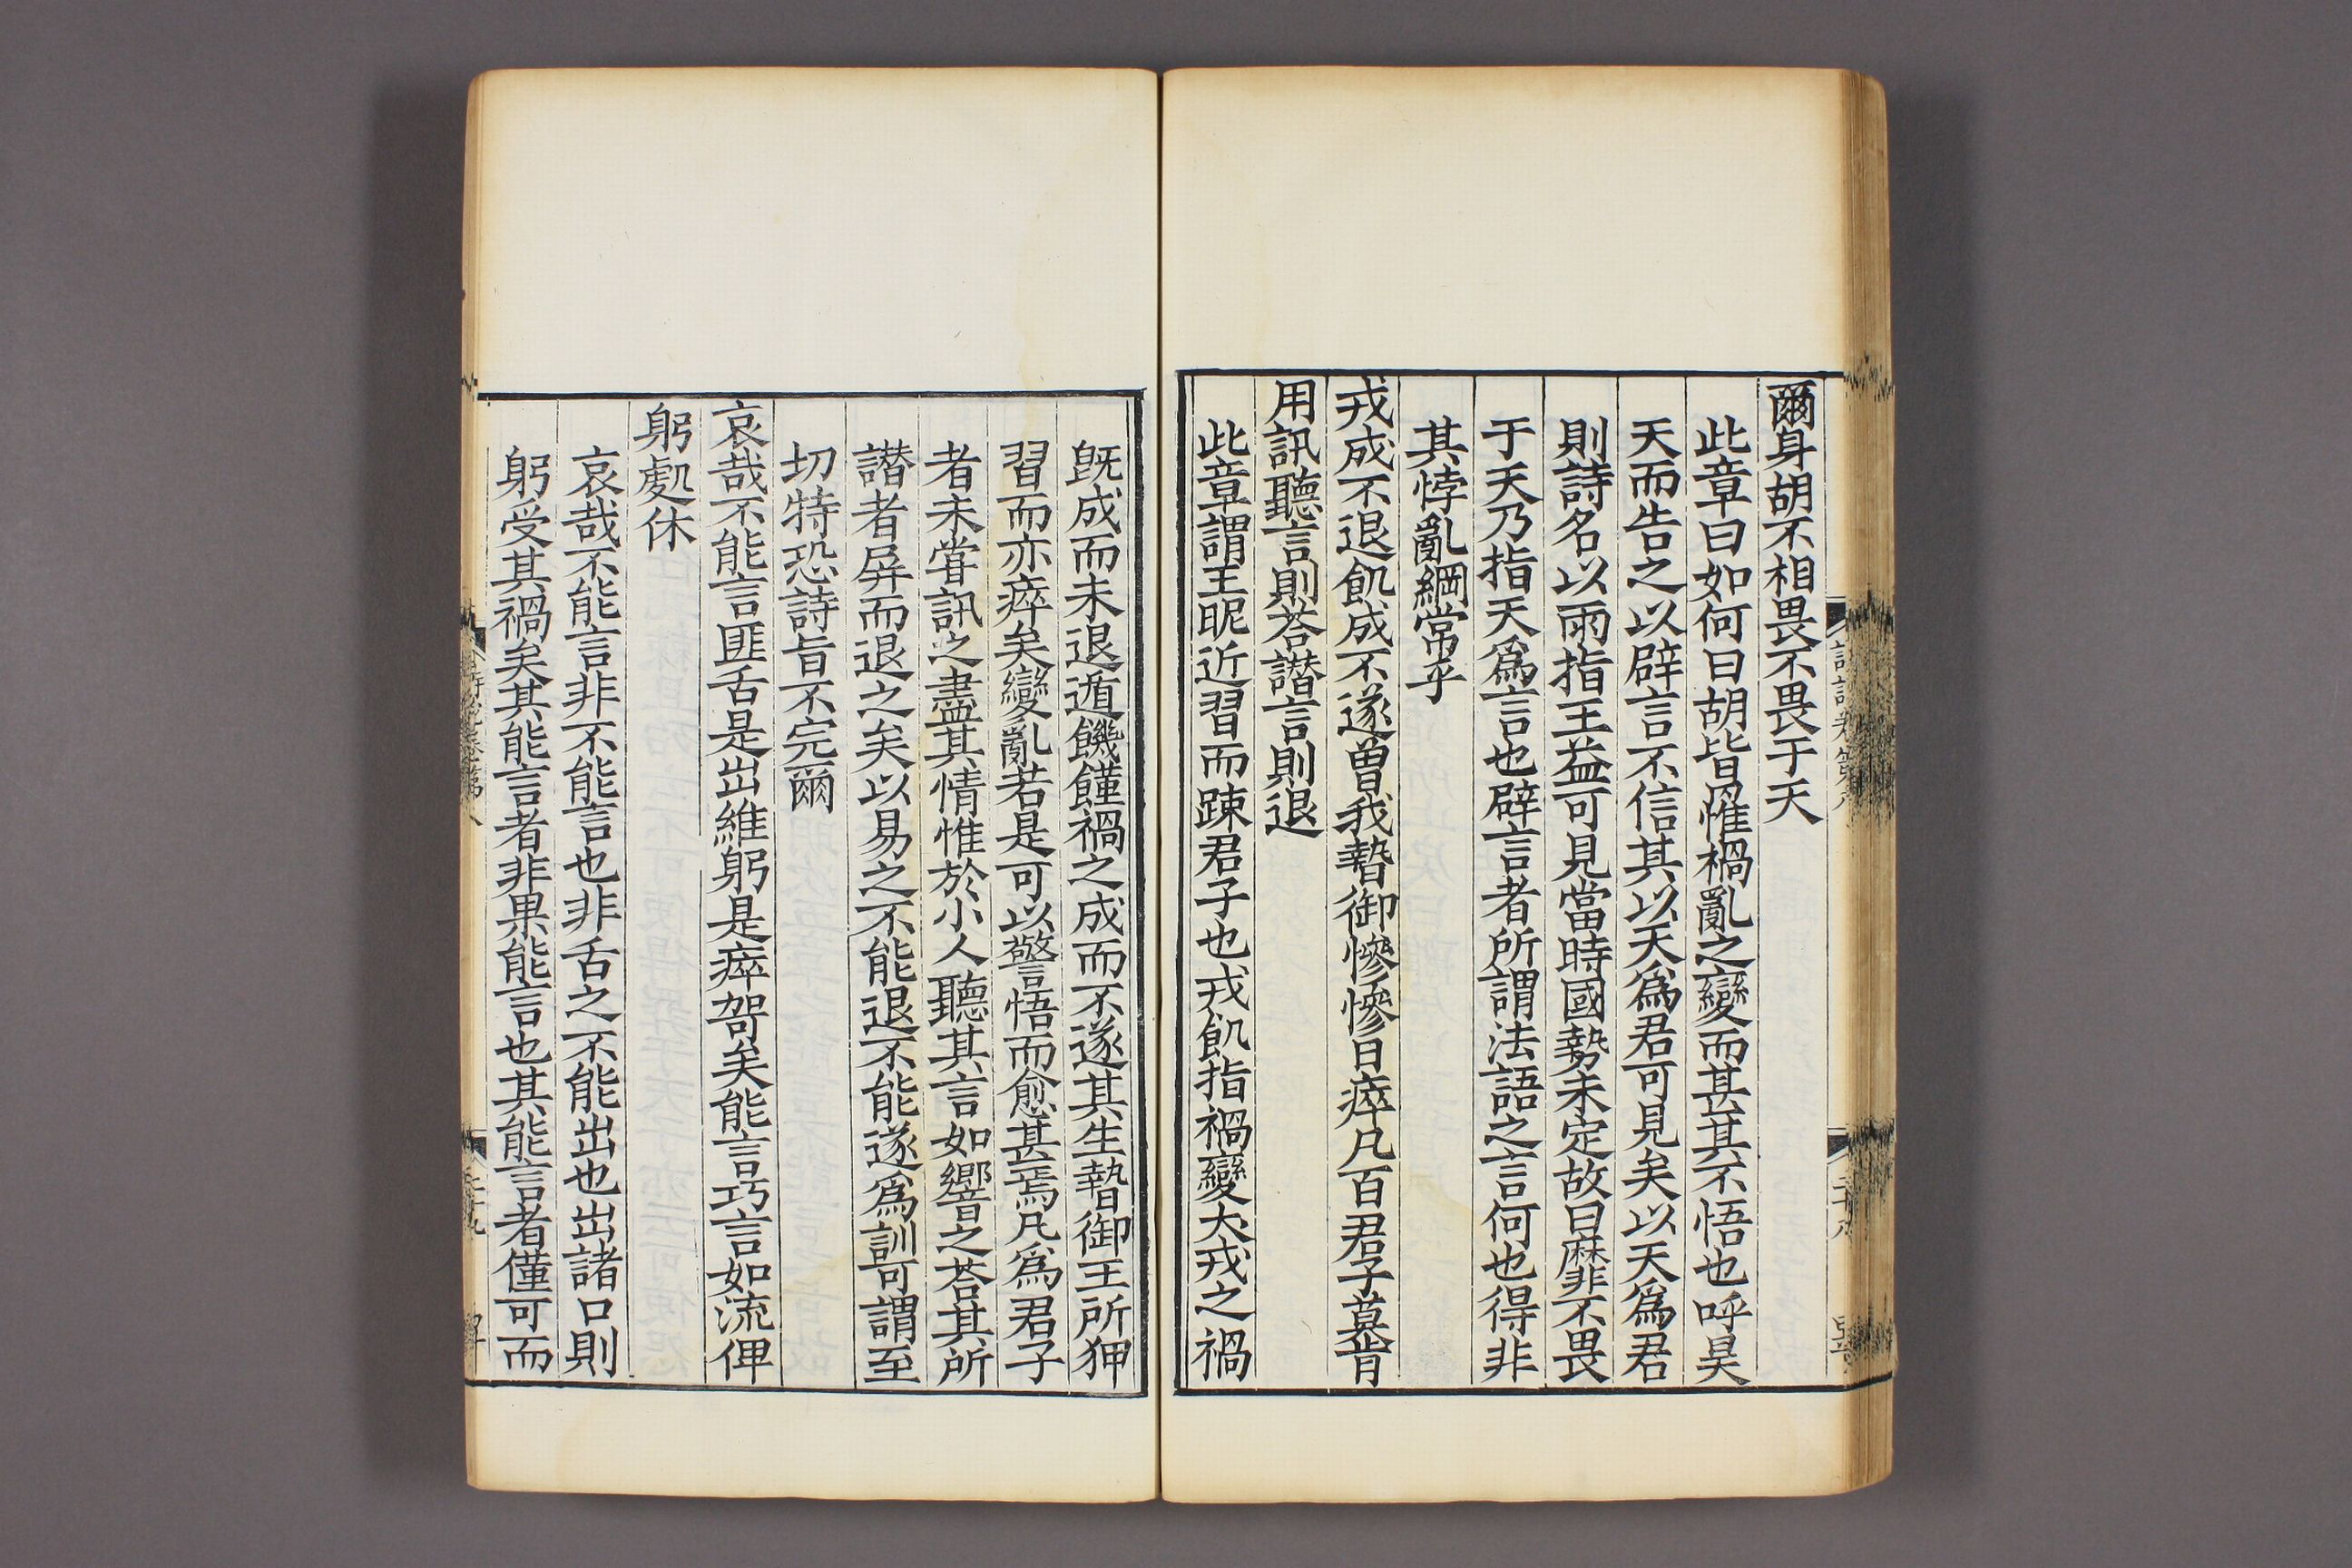 爾身胡不相畏不畏于天
此章曰如何曰胡皆罹禍亂之變而甚其不悟也呼昊
天而告之以辟言不信其以天爲君可見矣以天爲君
則詩名以雨指王益可見當時國勢未定故曰靡非不畏
于天乃指天爲言也辟言者所謂法語之言何也得非
其悖亂綱常乎
戎成不退飢成不遂曾我暬御憯憯日瘁凡百君子莫肯
用訊聽言則荅譖言則退
此章謂王昵近習而踈君子也戎飢指禍變犬戎之禍
旣成而未退遁饑饉禍之成而不遂其生暬御王所狎
習而亦瘁矣變亂若是可以警悟而愈甚焉凡爲君子
者未甞訊之盡其情惟於小人聽其言如響之荅其所
譖者屏而退之矣以易之不能退不能遂爲訓可謂至
切特恐詩旨不完爾
哀哉不能言匪舌是出維躬是瘁哿矣能言巧言如流俾
躬處休
哀哉不能言非不能言也非舌之不能出也出諸口則
躬受其禍矣其能言者非果能言也其能言者僅可而